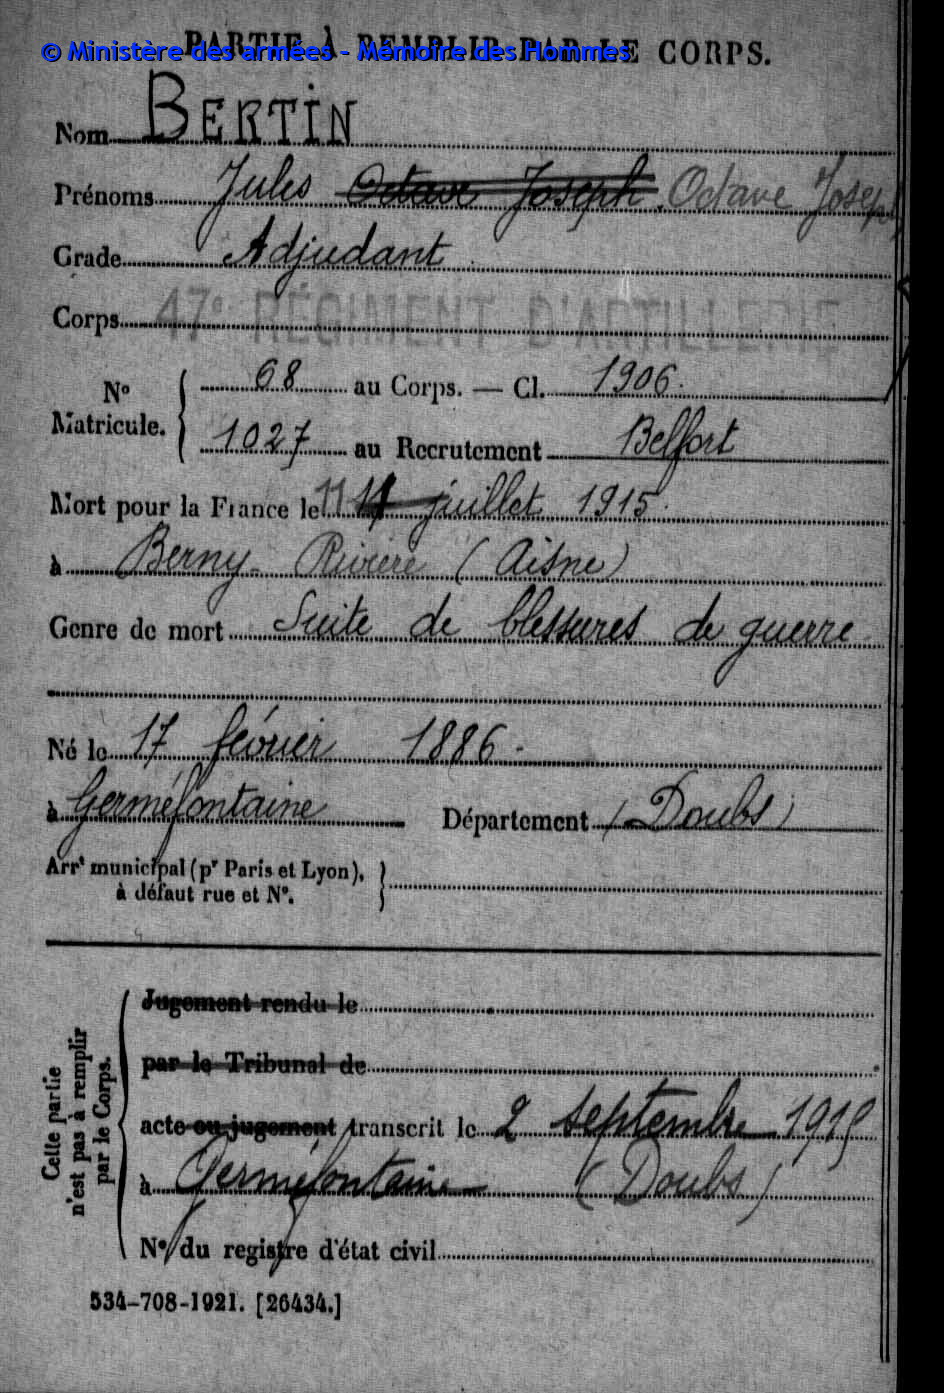 PARTIE À REMPLIR PAR LE CORPS.
© Ministère des armées - Mémoire des Hommes
Nom BERTIN
Prénoms Jules Octave Joseph Octave Joseph
Grade Adjudant
Corps 47e RÉGIMENT D'ARTILLERIE
No Matricule. { 68 au Corps. — Cl. 1906.
1027 au Recrutement Belfort
Mort pour la France le 11 juillet 1915.
à Berny-Rivière (Aisne)
Genre de mort Suite de blessures de guerre
Né le 17 février 1886.
à Germéfontaine Département (Doubs)
Arrt municipal (pr Paris et Lyon), à défaut rue et No. }
Cette partie n'est pas à remplir par le Corps.
Jugement rendu le
par le Tribunal de
acte ou jugement transcrit le 2 septembre 1915
à Germéfontaine (Doubs)
No du registre d'état civil
534-708-1921. [26434.]